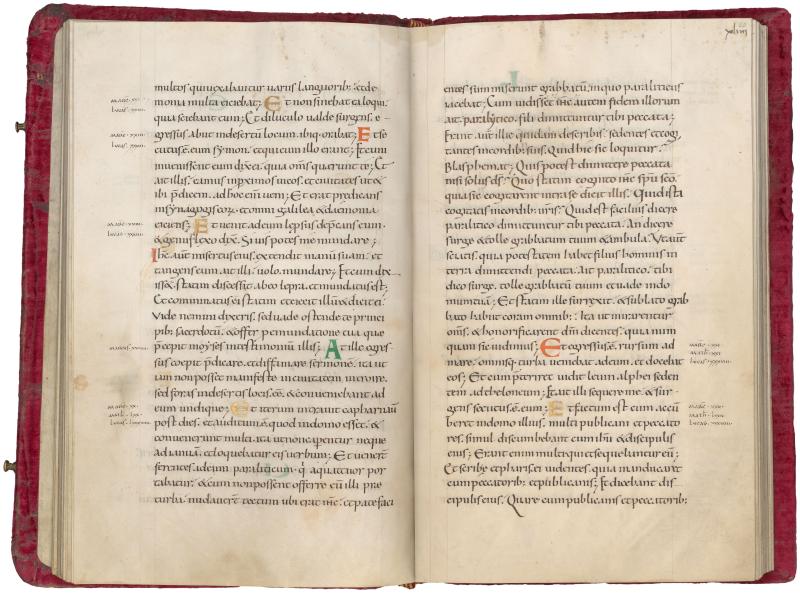 multos qui uexabantur uariis languorib; et de
monia multa eiciebat; Et non sinebat ea loqui.
quia sciebant eum; Et diluculo ualde surgens. e
gressus abiit in desertū locum. ibiq· orabat; Et se
cutus ē eum symon. et qui cum illo erant; Et cum
inuenissent eum dix̄ ei. quia om̄s querunt te; Et
ait illis. eamus in proximos uicos. et ciuitates ut &
ibi p̄dicem. ad hoc enī ueni; Et erat predicans
in synagogis eoɀ. et omni galilea & demonia
eiciens; Et uenit ad eum leprosus dep̄cans eum.
& genu flexo dix̄. Si uis potes me mundare;
Ihc̄ aut̄ misertus eius. extendit manū suam. et
tangens eum. ait illi. uolo. mundare; Et cum dix
isset. statim discessit ab eo lepra. et mundatus est;
Et comminatus ei statim et eiecit illum & dicit ei.
Vide nemini dixeris. sed uade ostende te princi
pib; sacerdotū. & offer p emundatione tua que
p̄cepit moyses in testimoniū illis; At ille egres
sus coepit p̄dicare. et diffamare sermonē. ita ut
iam non posset manifeste in ciuitatem introire.
sed foris in desertis locis esset. & conueniebant ad
eum undique; Et iterum intrauit capharnaū
post dies. et auditum ē quod in domo esset. &
conuenerunt multi. ita ut non caperent neque
ad ianuā. et loquebatur eis uerbum; Et uenerūt
ferentes. ad eum paraliticum. q̄ a quattuor por
tabatur. & cum non possent offerre eū illi præ
turba. nudauerūt tectum ubi erat ihc̄. et patefaci
entes summiserunt grabbatū. in quo paraliticus
iacebat; Cum uidisset ihc̄ autem fidem illorum
ait paralytico. fili dimittuntur tibi peccata;
Erant aut̄ illic quidam de scribis. sedentes et cogi
tantes in cordib; suis. Quid hic sic loquitur.
Blasphemat; Quis potest dimittere peccata
nisi solus ds̄; Quo statim cognito ihc̄ spū sc̄o.
quia sic cogitarent intra se dicit illis. Quid ista
cogitatis in cordib; ūris. Quid est facilius dicere
paralitico dimittuntur tibi peccata. An dicere
surge & tolle grabbatum tuum & ambula. Vt aut̄
sciatis. quia potestatem habet filius hominis in
terra dimittendi peccata. Ait paralitico. tibi
dico surge. tolle grabbatū tuum et uade in do
mum tuā; Et statim ille surrexit. & sublato grab
bato. habiit coram omnib;. Ita ut mirarentur
om̄s. & honorificarent dm̄ dicentes. quia num
quam sic uidimus; Et egressus ē rursum ad
mare. omnisq· turba ueniebat ad eum. et docebat
eos; Et cum p̄teriret uidit leuin alphei seden
tem. ad theloneum; Et ait illi sequere me. & sur
gens secutus ē. eum; Et factum est cum accū
beret in domo illius. multi publicani et peccato
res. simul discumbebant cum ihū & discipulis
eius; Erant enim multi qui et sequebantur eū;
Et scribȩ et pharisei uidentes. quia manducaret
cum peccatorib;. et publicanis; Et dicebant dis
cipulis eius. Quare cum publicanis et peccatorib;